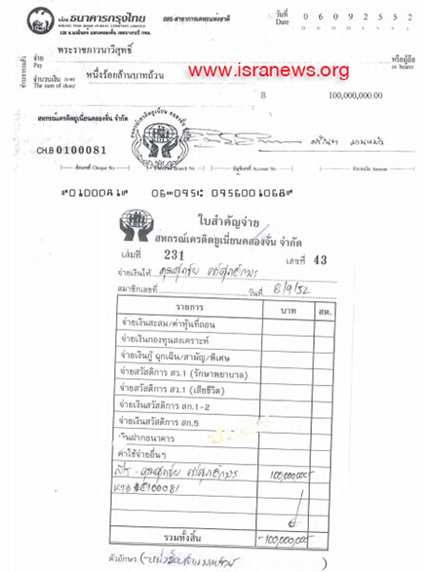 ธนาคารกรุงไทย
วันที่ 06092552
Date
จ่าย พระราชภาวนาวิสุทธิ์ หรือผู้ถือ
Pay or bearer
www.isranews.org
จำนวนเงิน หนึ่งร้อยล้านบาทถ้วน
The sum of
B 100,000,000.00
สหกรณ์เครดิตยูเนี่ยนคลองจั่น จำกัด
CH.B 0100081
ใบสำคัญจ่าย
สหกรณ์เครดิตยูเนี่ยนคลองจั่น จำกัด
เล่มที่ 231 เลขที่ 43
จ่ายเงินให้ คุณศุภชัย ศรีศุภอักษร
สมาชิกเลขที่ วันที่ 8/9/52
รายการ บาท สต.
จ่ายเงินสะสม/ค่าหุ้นที่ถอน
จ่ายเงินกองทุนสงเคราะห์
จ่ายเงินกู้ ฉุกเฉิน/สามัญ/พิเศษ
จ่ายสวัสดิการ สว.1 (รักษาพยาบาล)
จ่ายสวัสดิการ สว.1 (เสียชีวิต)
จ่ายเงินสวัสดิการ สก.1-2
จ่ายเงินสวัสดิการ สก.5
เงินฝากธนาคาร
ค่าใช้จ่ายอื่นๆ
คุณศุภชัย ศรีศุภอักษร 100,000,000-
0100081
รวมทั้งสิ้น -100,000,000-
ตัวอักษร (-หนึ่งร้อยล้านบาทถ้วน-)